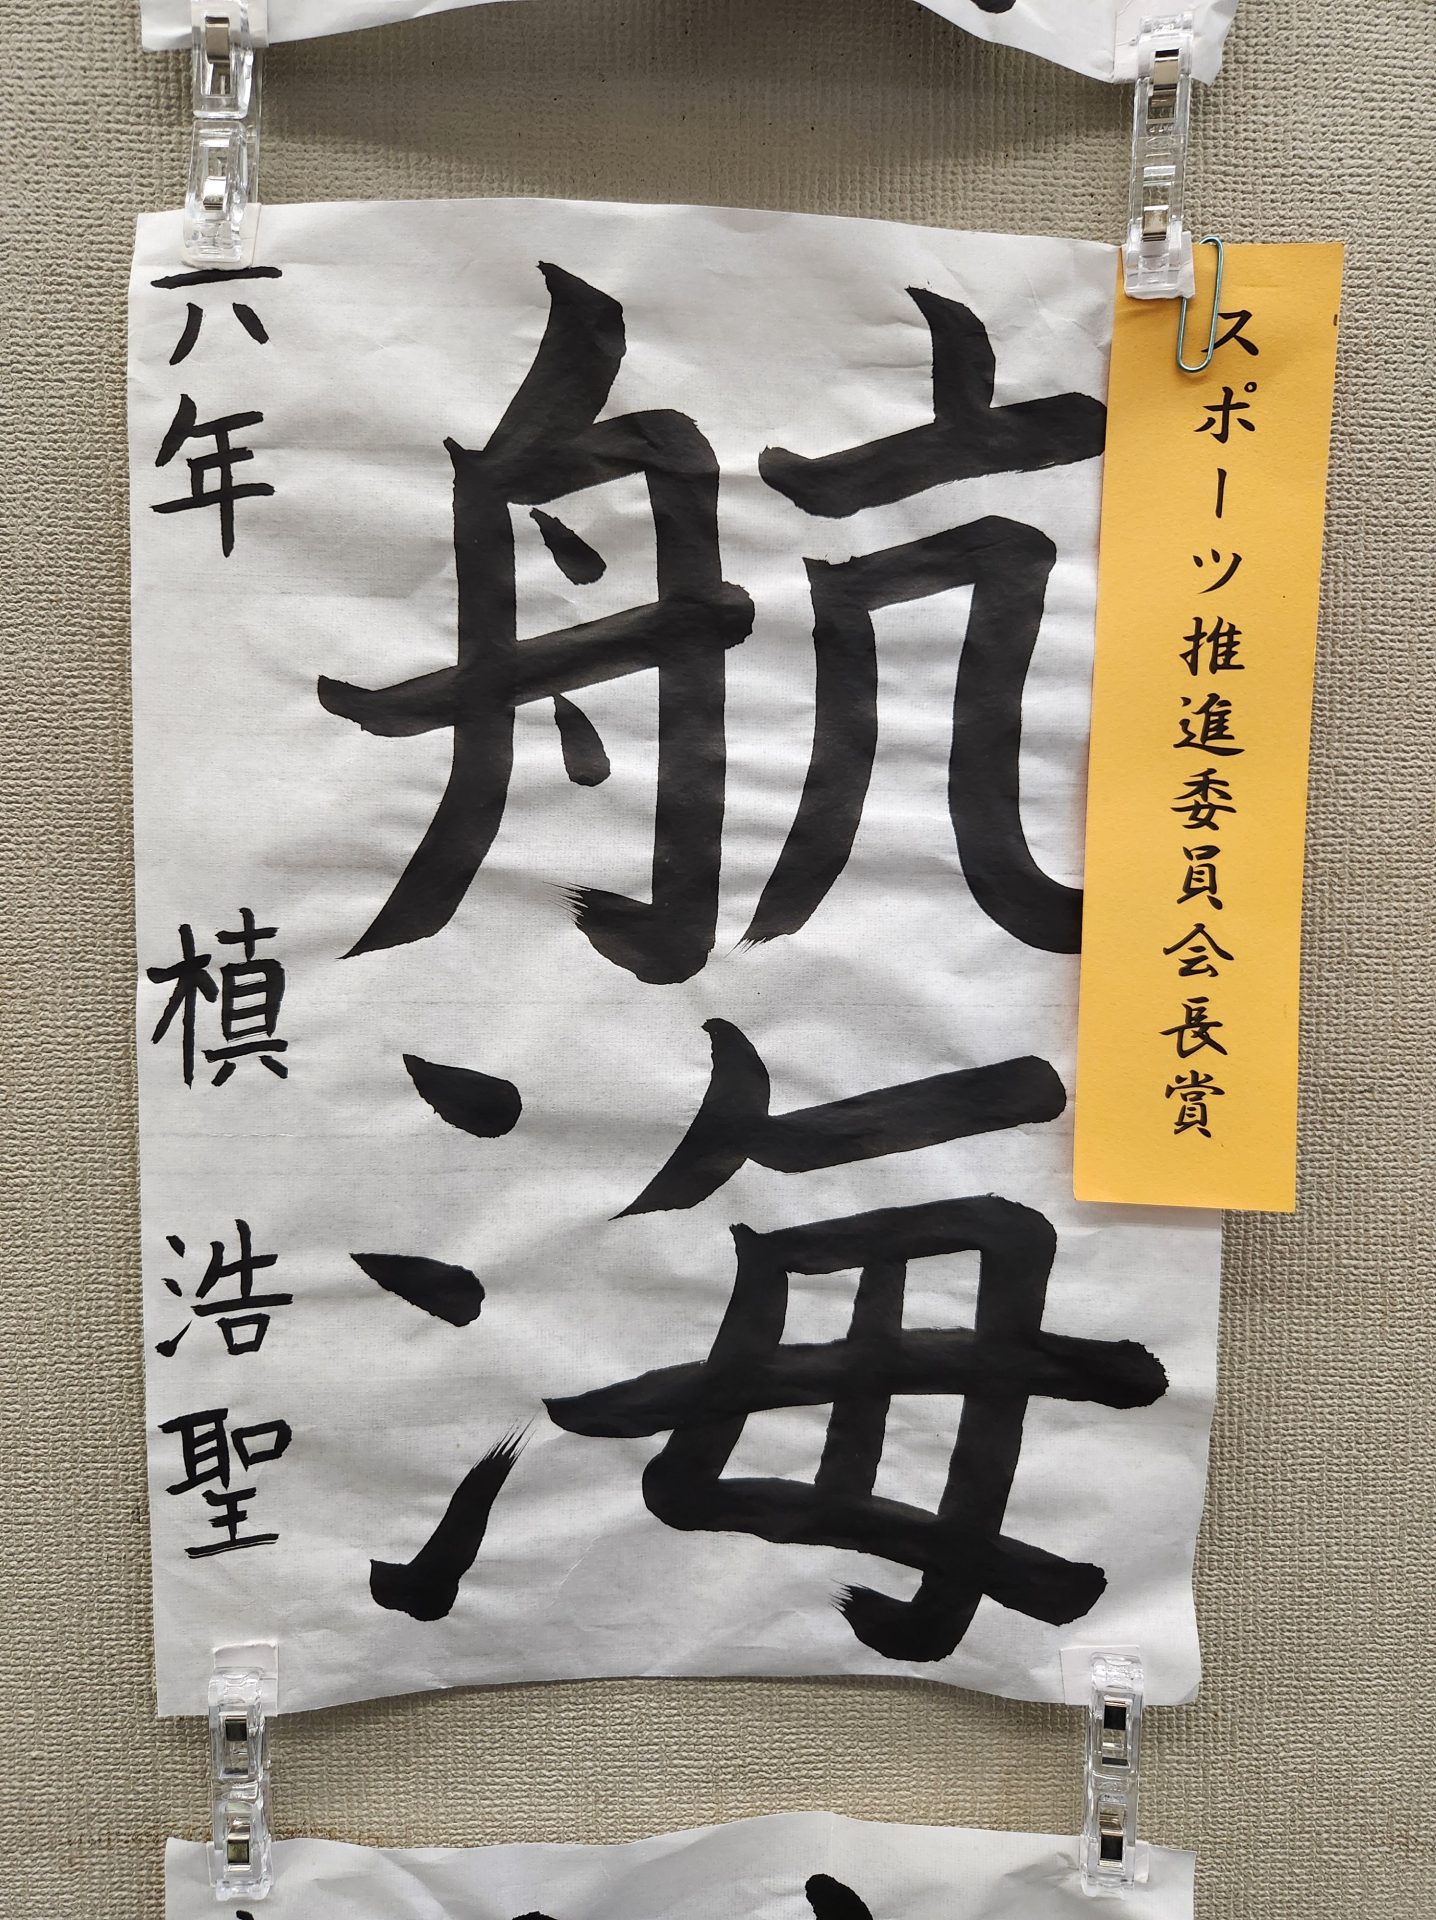 スポーツ推進委員会長賞
航海
六年 槙 浩聖